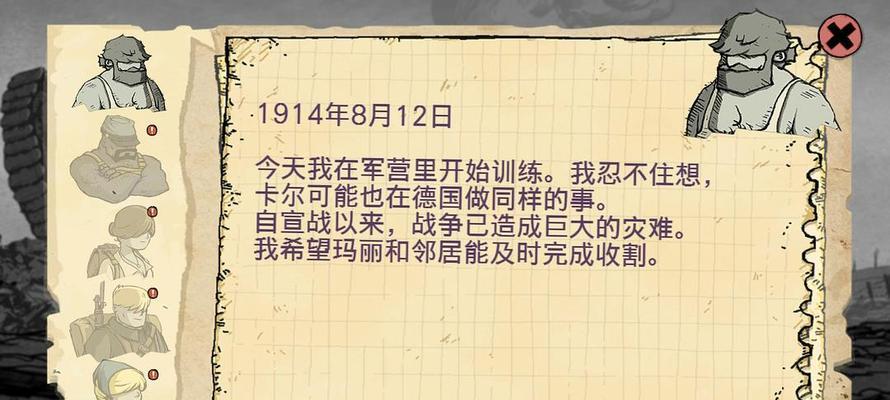 1914年8月12日
今天我在军营里开始训练。我忍不住想，
卡尔可能也在德国做同样的事。
自宣战以来，战争已造成巨大的灾难。
我希望玛丽和邻居能及时完成收割。